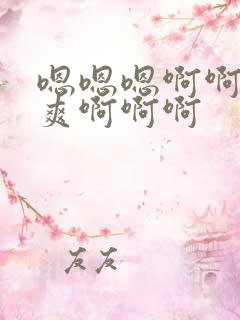 嗯嗯嗯啊啊
爽啊啊啊
友友